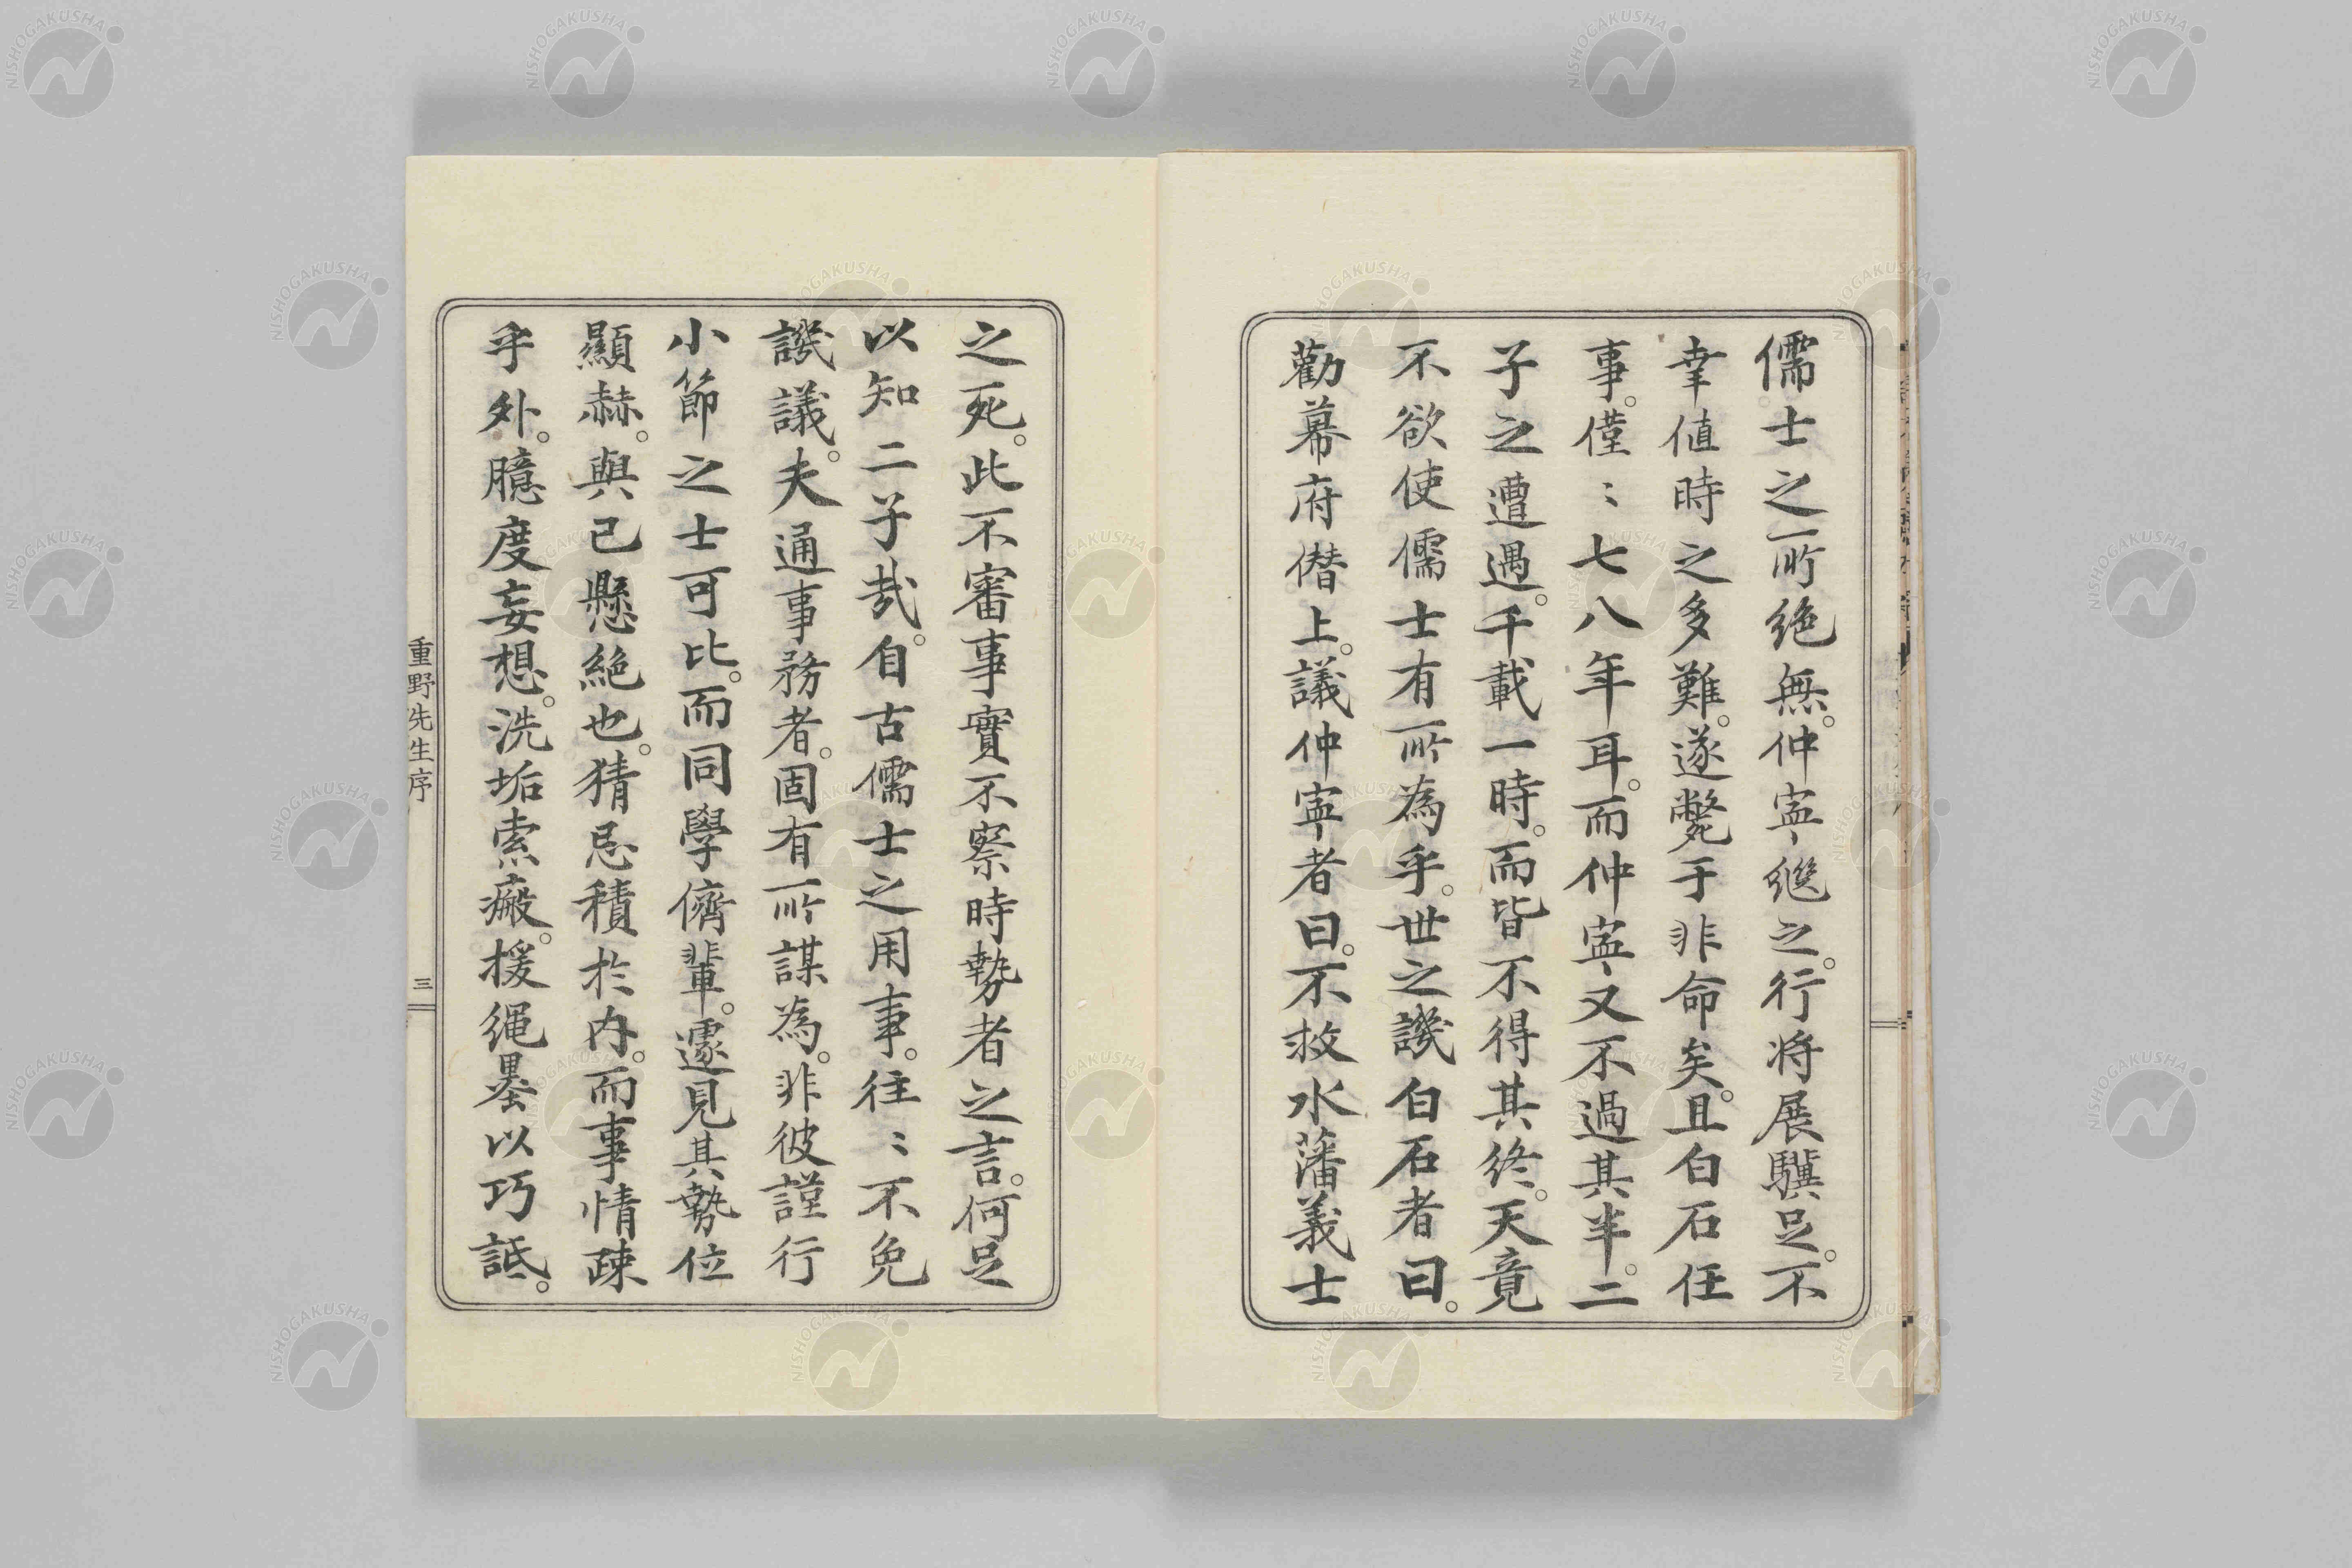 儒士之所絶無。仲寧繼之。行将展驥足。不
幸値時之多難。遂斃于非命矣。且白石任
事。僅〻七八年耳。而仲寧又不過其半。二
子之遭遇。千載一時。而皆不得其終。天竟
不欲使儒士有所為乎。世之譏白石者曰。
勸幕府僭上。議仲寧者曰。不救水藩義士
之死。此不審事實不察時勢者之言。何足
以知二子哉。自古儒士之用事。往〻不免
譏議。夫通事務者。固有所謀為。非彼謹行
小節之士可比。而同學儕輩。遽見其勢位
顯赫。與己懸絶也。猜忌積於内。而事情疎
乎外。臆度妄想。洗垢索瘢。援繩墨以巧詆。
重野先生序
三
NISHOGAKUSHA